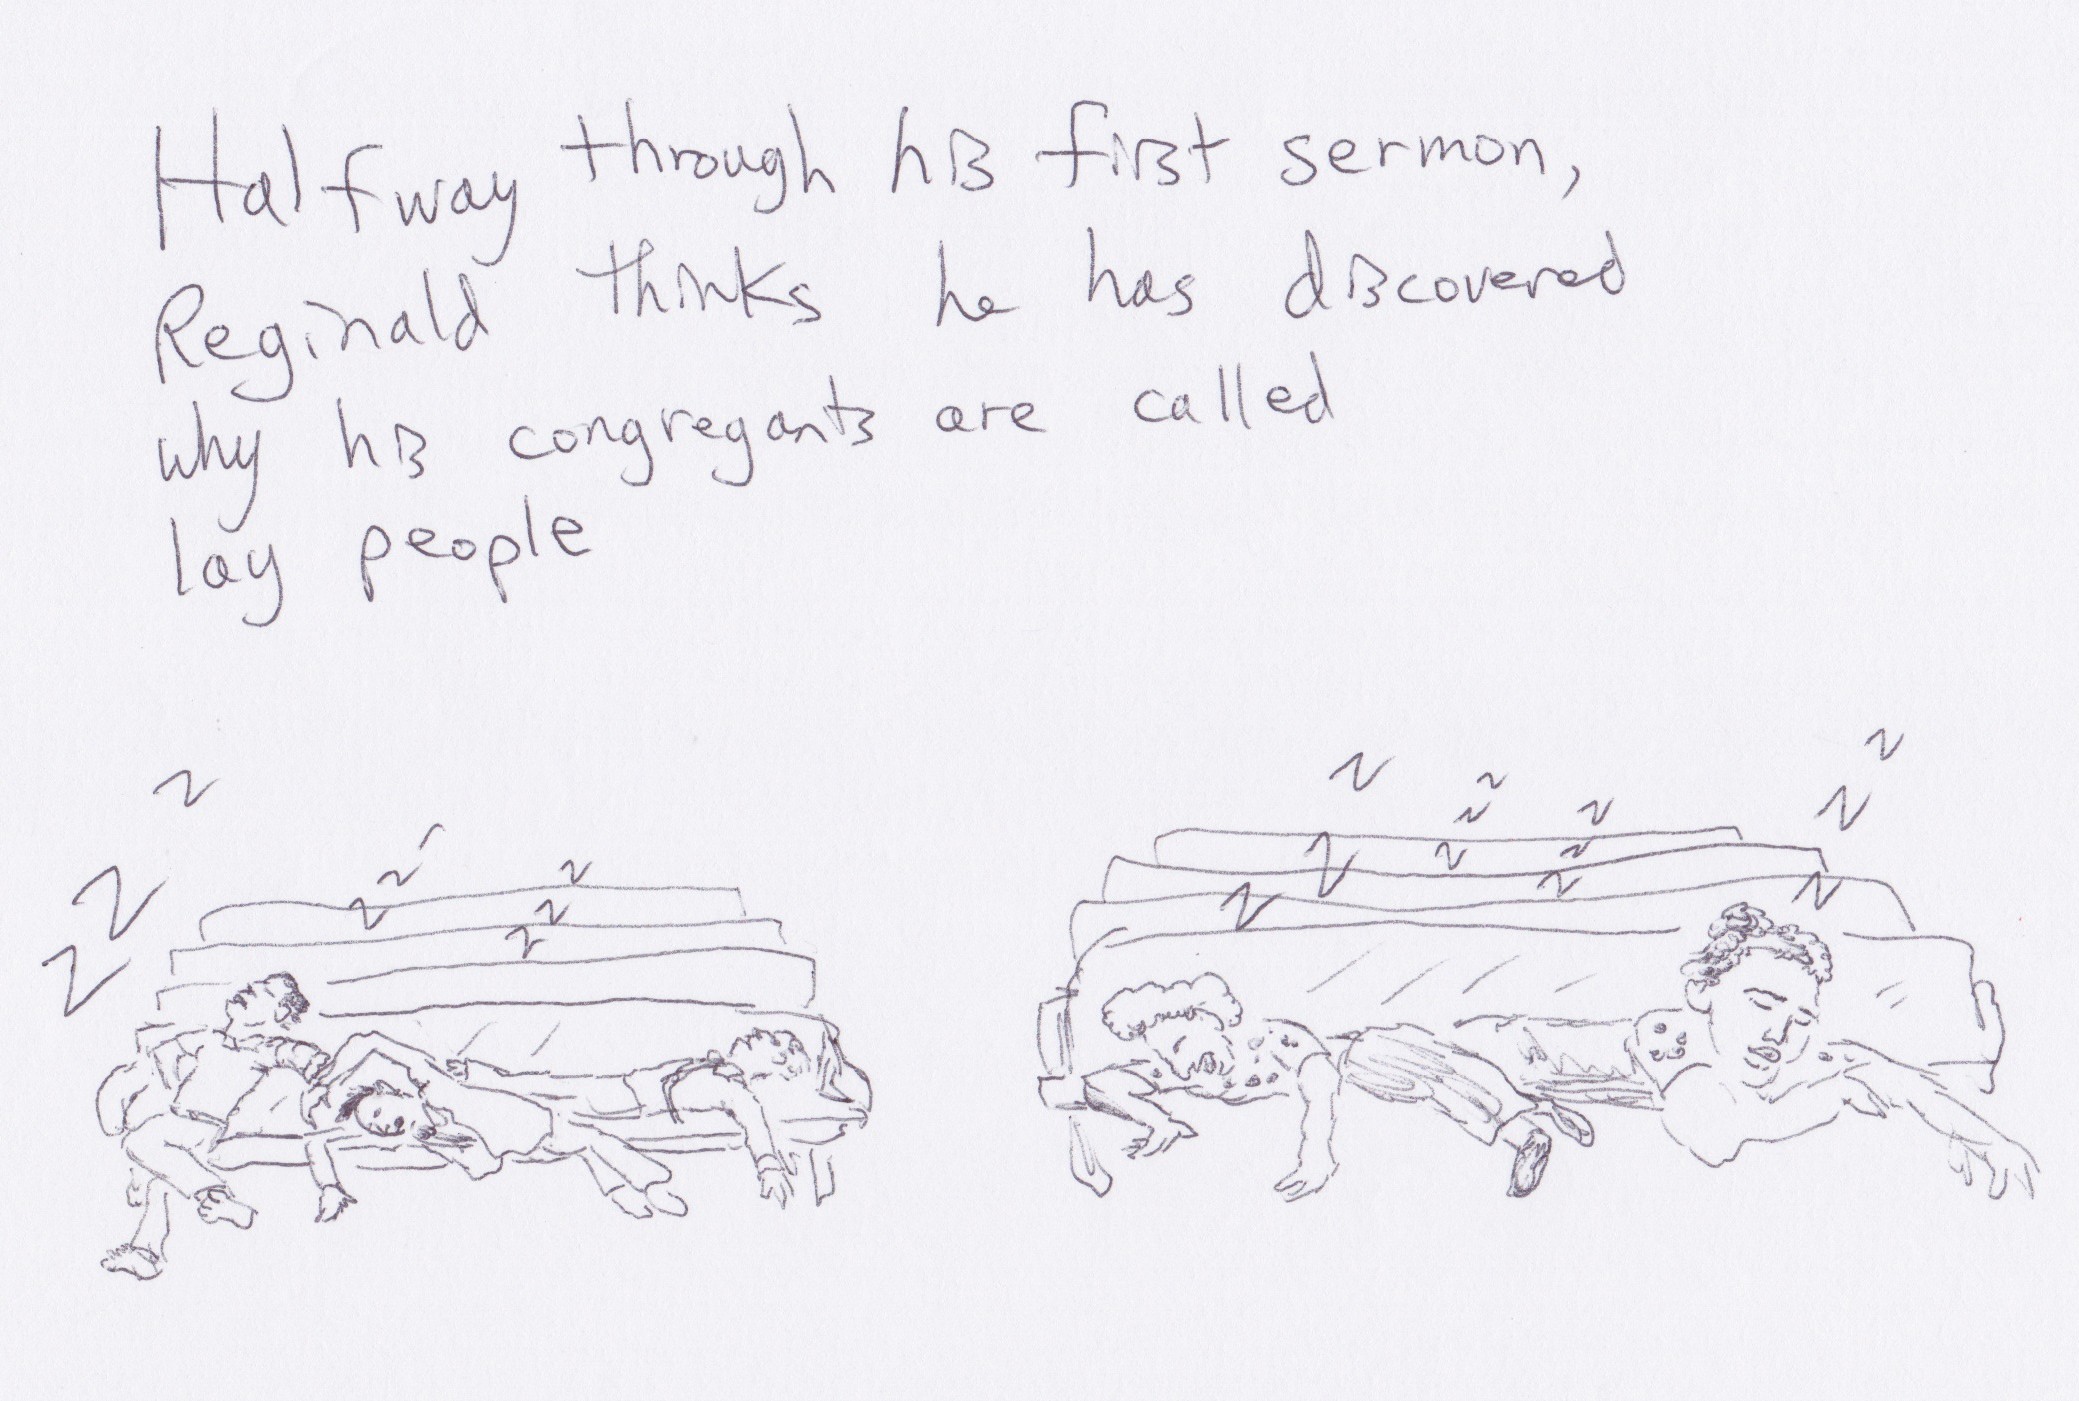 Halfway through his first sermon,
Reginald thinks he has discovered
why his congregants are called
lay people
z z z z z z z z z
z z z z z z z z z z z z z